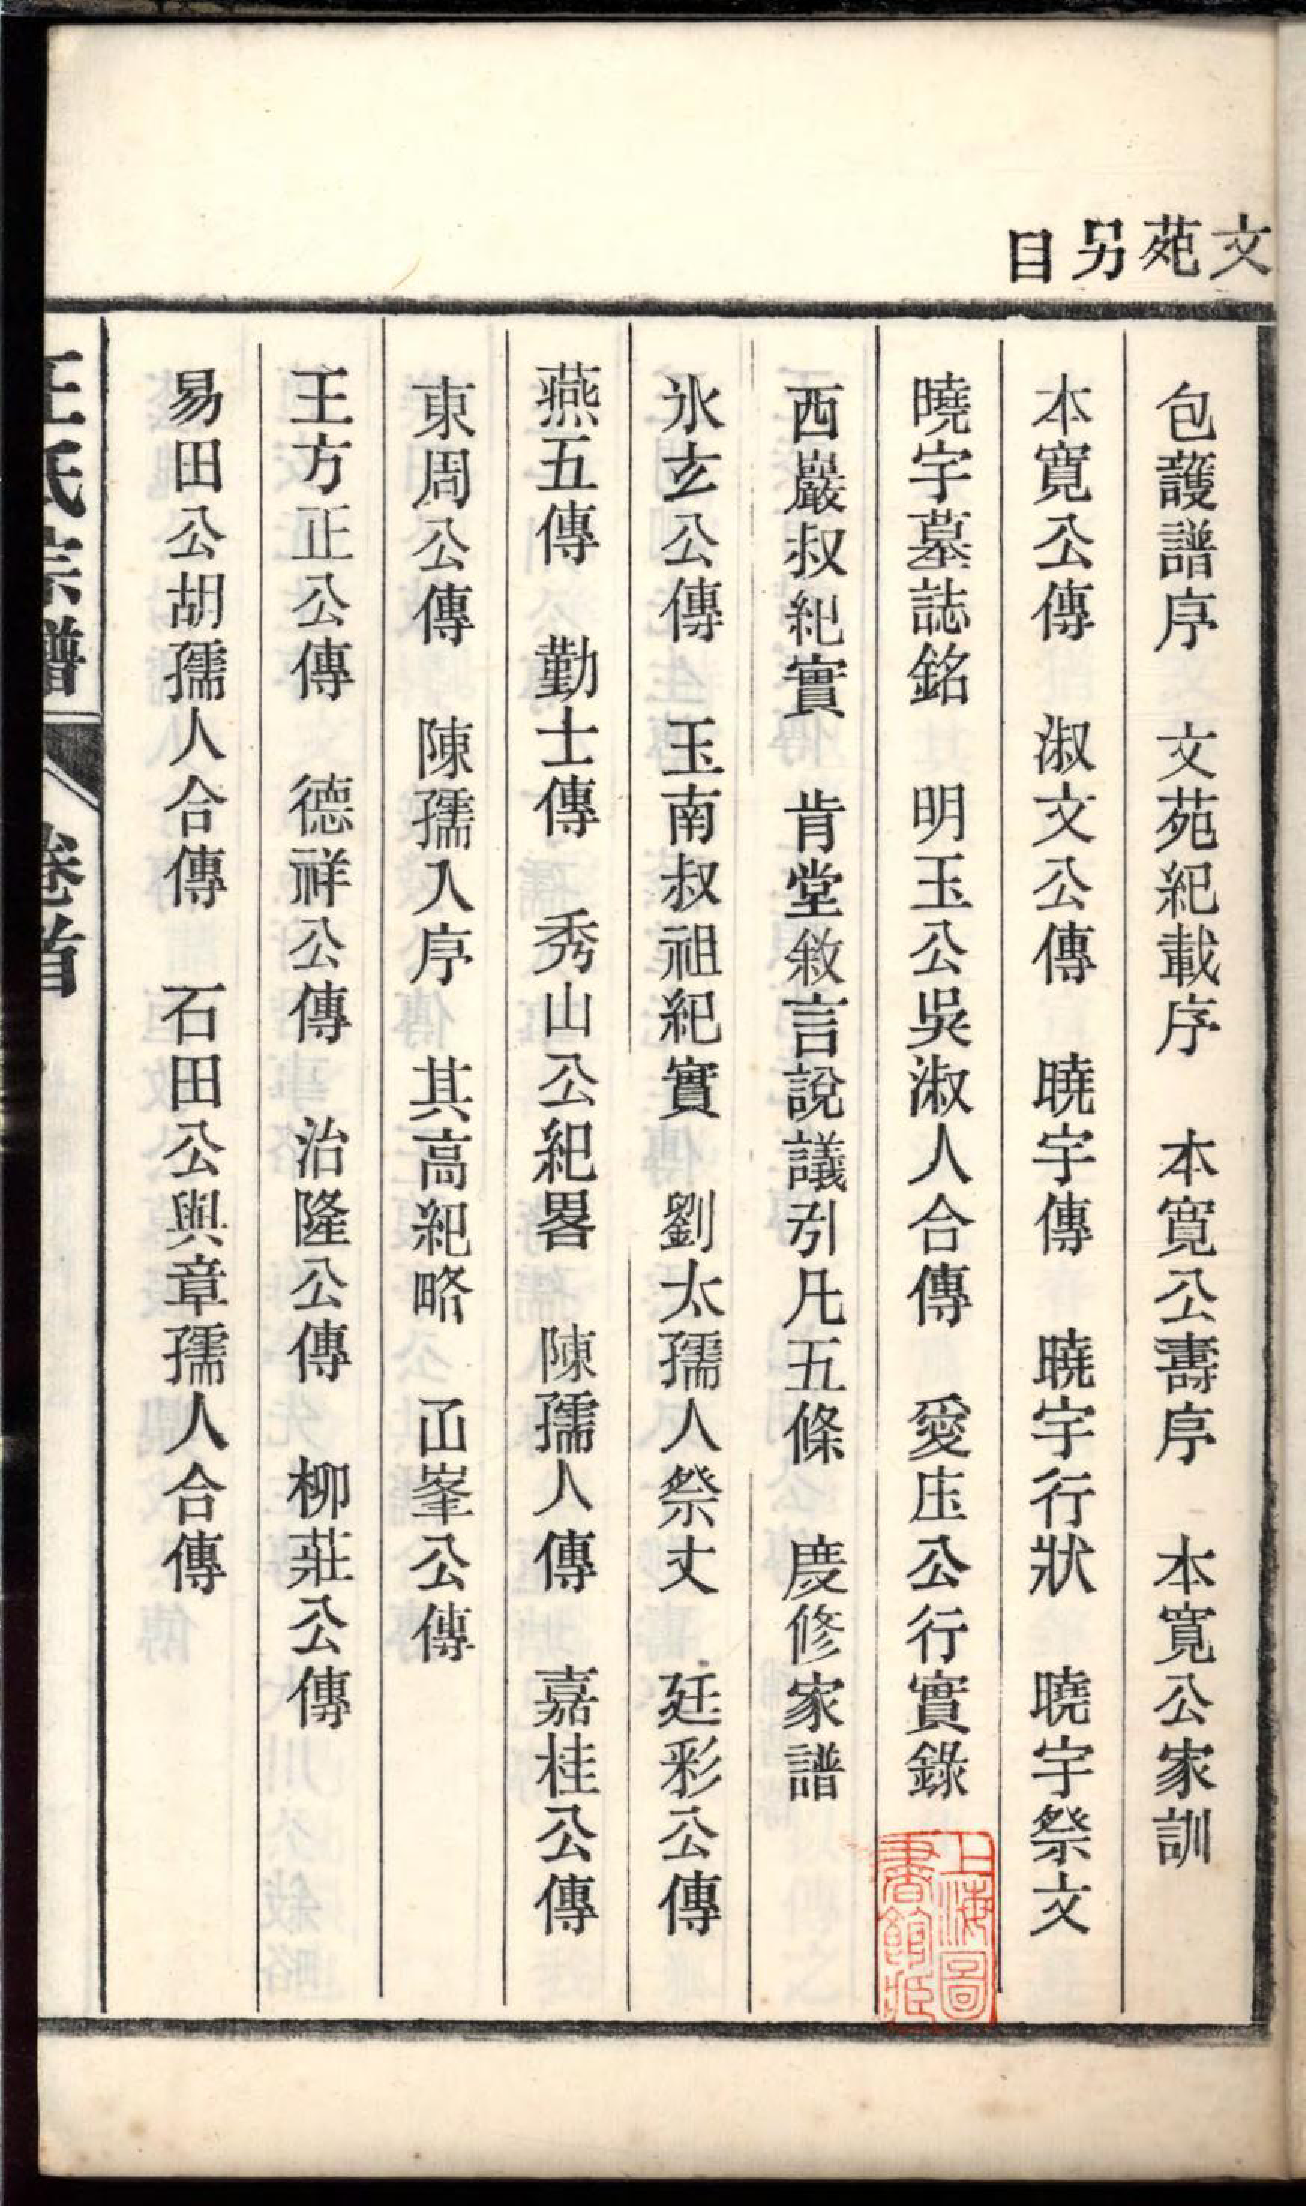 文苑另目
包護譜序　文苑紀載序　本寬公壽序　本寬公家訓
本寬公傳　淑文公傳　曉宇傳　曉宇行狀　曉宇祭文
曉宇墓誌銘　明玉公吳淑人合傳　愛庒公行實錄
西巖叔紀實　肯堂敘言說議引凡五條　慶修家譜
氷玄公傳　玉南叔祖紀實　劉太孺人祭文　廷彩公傳
燕五傳　勤士傳　秀山公紀畧　陳孺人傳　嘉桂公傳
東周公傳　陳孺人序　其高紀略　𠚖峯公傳
王方正公傳　德祥公傳　治隆公傳　柳莊公傳
易田公胡孺人合傳　石田公與章孺人合傳
王氏宗譜　卷首
上海圖書館藏